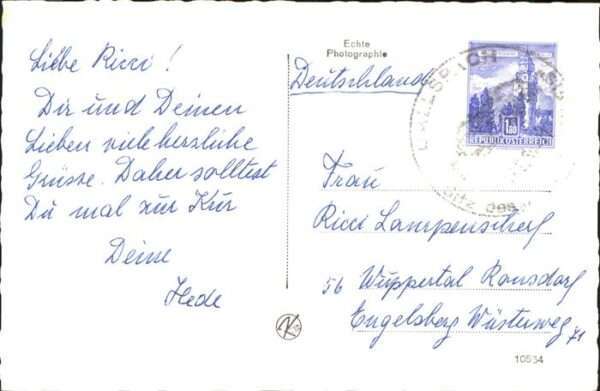 Liebe Ricci!
Dir und Deinen
Lieben viele herzliche
Grüsse. Daher solltest
Du mal zur Kur
Deine
Hede
Echte
Photographie
Deutschland
1.80
REPUBLIK ÖSTERREICH
Frau
Ricci Lampenscherf
56 Wuppertal Ronsdorf
Engelsberg Wüsterweg 71
10534